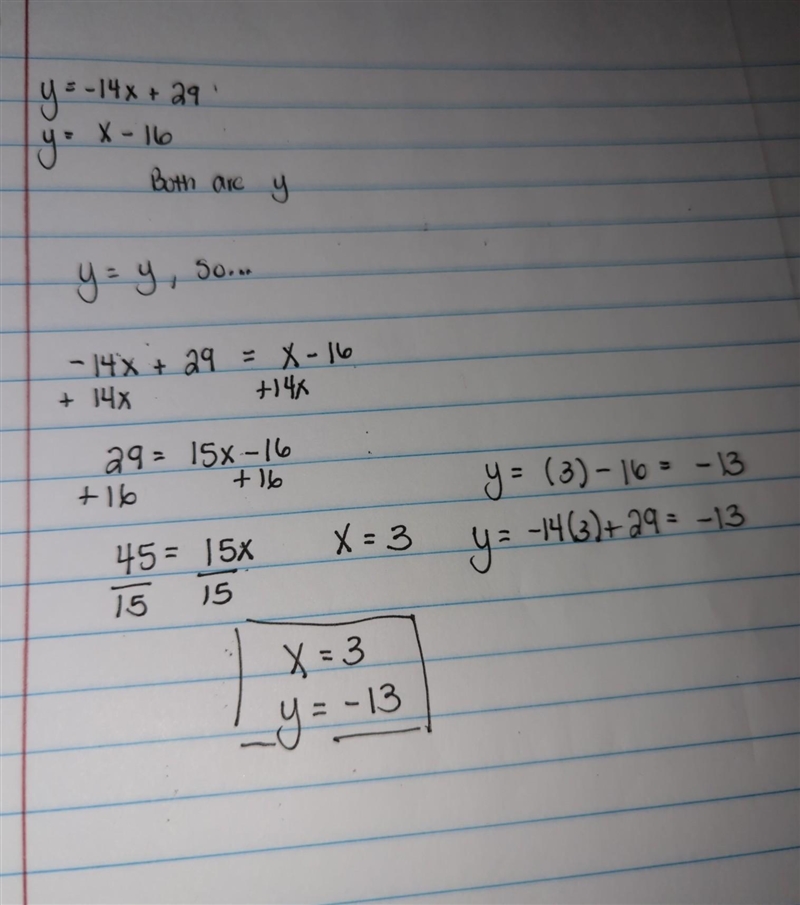 y = -14x + 29
y = x - 16
Both are y
y = y, so...
-14x + 29 = x - 16
+ 14x +14x
29 = 15x - 16
+16 +16
45 = 15x
15 15
x = 3
y = (3) - 16 = -13
y = -14(3) + 29 = -13
x = 3
y = -13